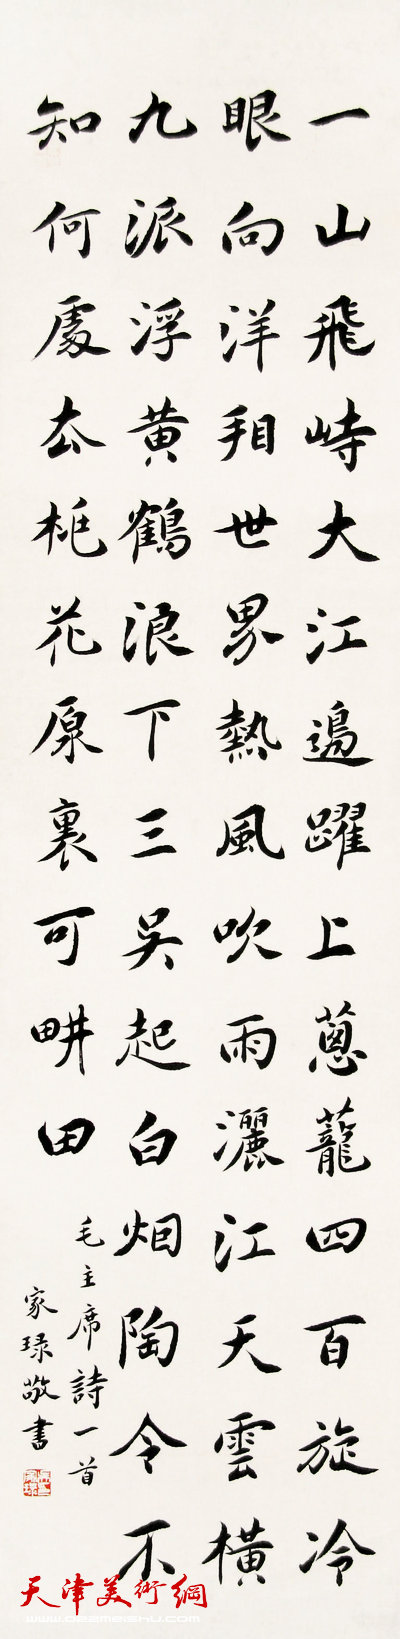 一山飛峙大江邊躍上蔥蘢四百旋冷
眼向洋看世界熱風吹雨灑江天雲橫
九派浮黃鶴浪下三吳起白烟陶令不
知何處去桃花原裏可畊田
毛主席詩一首
家琭敬書
天津美術網